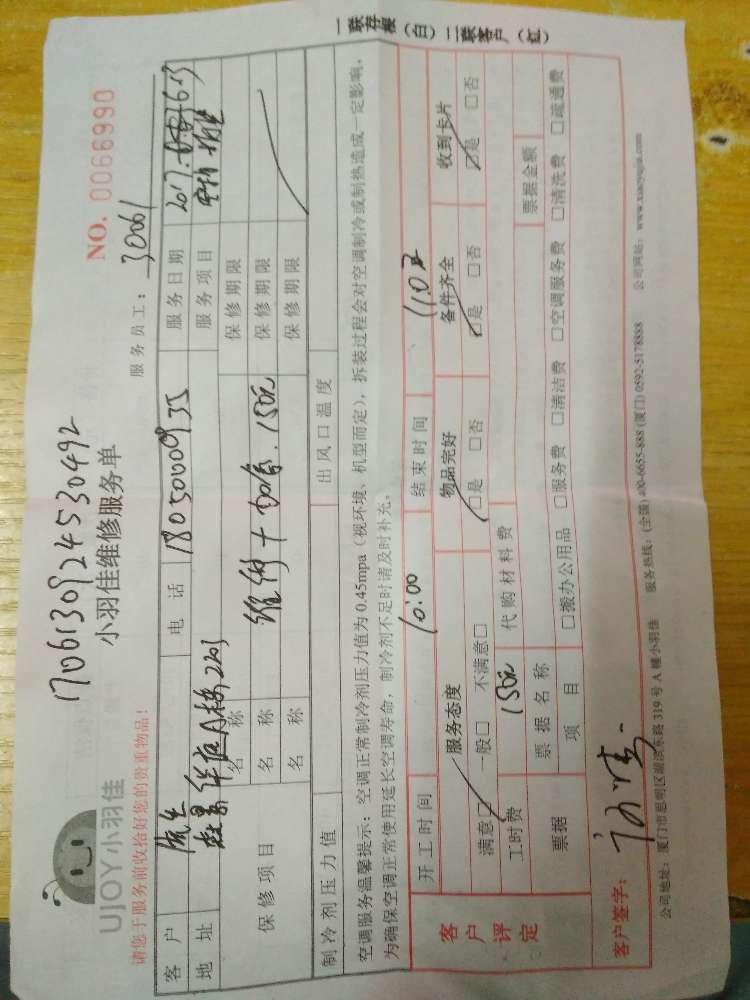 1706130924530492
UJOY小羽佳
小羽佳维修服务单
NO. 0066990
请您于服务前收拾好您的贵重物品！
服务员工： 30061
客户 电话 18050000935 服务日期
地址 华庭A栋2203 服务项目 空调
保修项目 名称 保修期限
名称 维修 加氟 150元 保修期限
名称 保修期限
制冷剂压力值 出风口温度
空调服务温馨提示：空调正常制冷剂压力值为0.45mpa（视环境、机型而定），拆装过程会对空调制冷或制热造成一定影响，
为确保空调正常使用延长空调寿命，制冷剂不足时请及时补充。
开工时间 10:00 结束时间 11:02
客户评定
服务态度 物品完好 备件齐全 收到卡片
满意□ 一般□ 不满意□ □是 □否 □是 □否 □是 □否
工时费 150元 代购材料费
票据 票据名称 票据金额
项目 □搬办公用品 □服务费 □清洁费 □空调服务费 □清洗费 □疏通费
客户签字：
公司地址：厦门市思明区湖滨东路319号A幢小羽佳 服务热线：(全国) 400-6655-888 (厦门) 0592-5178888 公司网站：www.xiaoyujia.com
一联存根（白）二联客户（红）